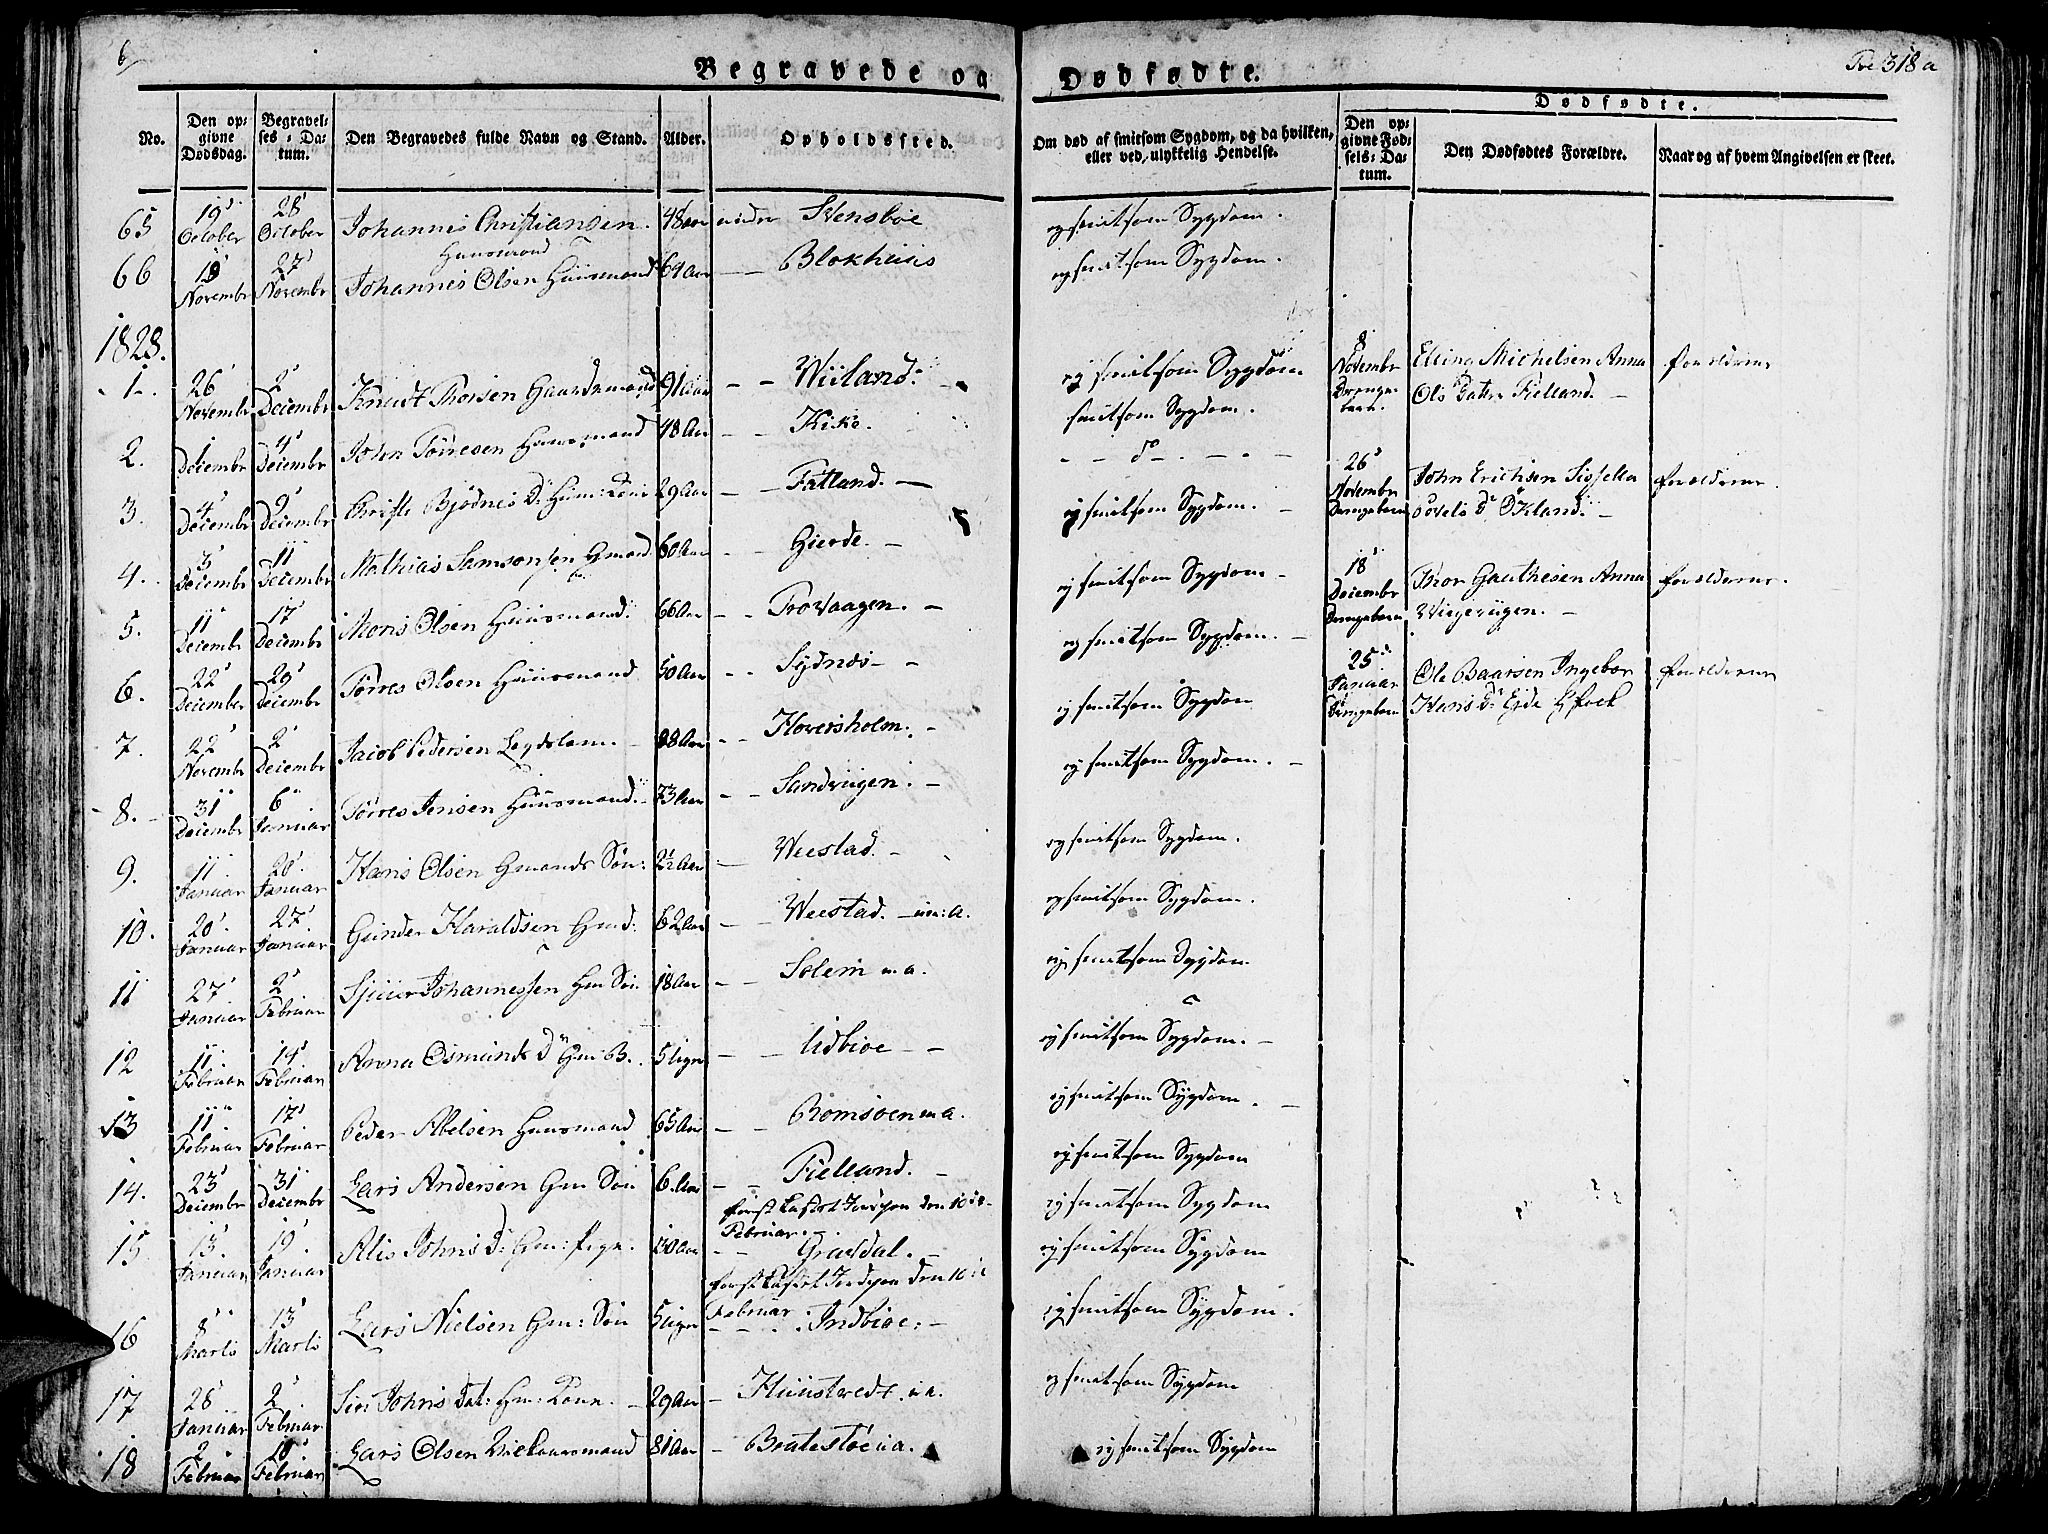 6
Begravede og Dødfødte.
Foe 318 a
Dødfødte.
No. Den opgivne Dødsdag. Begravelses-Datum. Den Begravedes fulde Navn og Stand. Alder. Opholdssted. Om død af smitsom Sygdom, og da hvilken, eller ved ulykkelig Hendelse. Den opgivne Fødsels-Datum. Den Dødfødtes Forældre. Naar og af hvem Angivelsen er skeet.
65 19 October 28 October Johannes Christiansen Huusmand 48 Aar Svensbøe ej smitsom Sygdom.
66 18 Novembr 27 Novembr Johannes Olsen Huusmand 64 Aar – – Blokhuus ej smitsom Sygdom.
1828.
1. 26 Novembr 2 Decembr Knudt Thorsen Gaardmand 91 Aar – – Wiiland. ej smitsom Sygdom
8 Novembr Drengebarn. Elling Michelsen Anna Ols Datter Fielland. – forældrene
2. 1 Decembr 4 Decembr John Tørresen Huusmand 48 Aar – – Kike. smitsom Sygdom.
3. 4 Decembr 9 Decembr Christi Bjødnes D: Huus: Kone 29 Aar – – Fatland. – – – do – . – . –
26 Novembr Drengebarn John Erichsen Sissella Povels Dr Økland. – forældrene.
4. 3 Decembr 11 Decembr Mathias Samsonsen Gmand 60 Aar – – Gierde. – ej smitsom Sygdom. –
5. 11 Decembr 17 Decembr Mons Olsen Huusmand. 66 Aar – – Trovaagen. – ej smitsom Sygdom –
18 Decembr Drengebarn Thor Gauthesen Anna forældrene.
6. 22 Decembr 29 Decembr Tørres Olsen Huusmand 50 Aar – – Sydnes – – ej smitsom Sygdom. –
25 Januar Drengebarn Ole Baarsen Ingebor Hans Dr Eide forældrene
7. 22 Novembr 2 Decembr Jacob Pedersen Legdslem. – 88 Aar – – Hoversholm. – ej smitsom Sygdom
8. 31 Decembr 6 Januar Tørres Jensen Huusmand. 73 Aar – – Sandvigen. – ej smitsom Sygdom. –
9. 11 Januar 20 Januar Hans Olsen Gmands Søn: 2½ Aar – Weestad. – ej smitsom Sygdom.
10. 20 Januar 27 Januar Gunder Haraldsen Gmd: 62 Aar – – Weestad. – ej smitsom Sygdom.
11 27 Januar 2 Februar Sjuur Johannessen Gm Søn 18 Aar – – Solem u.a. ej smitsom Sygdom
12 11 Februar 14 Februar Anna Osmunds Dr Gm: B. 5 Uger – – Udbioe – – ej smitsom Sygdom. –
13 11 Februar 17 Februar Peder Abelsen Huusmand 65 Aar – – Romsøen u.a. ej smitsom Sygdom. –
14. 23 Decembr 31 Decembr Lars Andersen Gm Søn 6. Aar – – Fielland. – ej smitsom Sygdom
først kastet Jord paa den 10de Februar. ej smitsom Sygdom
15 13 Januar 19 Januar Alis Johns D: Gm: Pige. 30 Aar – – Gravdal. – ej smitsom Sygdom
først kastet Jord paa den 10de Februar
16 8 Marts 13 Marts Lars Nielsen Gm: Søn 5 Uger – – Indbioe: – ej smitsom Sygdom.
17 28 Januar 2 Februar Siri Johns Dat: Hm: Kone. – 29 Aar – Huustvedt. u.a. ej smitsom Sygdom
18 2 Februar 10 Februar Lars Olsen Vilkaarsmand 81 Aar – Bratestøe u.a. ej smitsom Sygdom